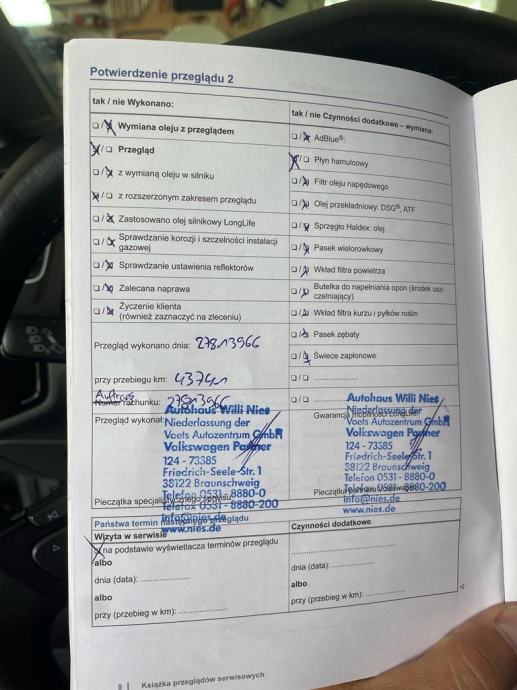 Potwierdzenie przeglądu 2
tak / nie Wykonano:
Wymiana oleju z przeglądem
Przegląd
z wymianą oleju w silniku
z rozszerzonym zakresem przeglądu
Zastosowano olej silnikowy LongLife
Sprawdzanie korozji i szczelności instalacji
gazowej
Sprawdzanie ustawienia reflektorów
Zalecana naprawa
Życzenie klienta
(również zaznaczyć na zleceniu)
Przegląd wykonano dnia: 27813966
przy przebiegu km:
Auftrags
Numer rachunku: 27813966
Przegląd wykonał:
Autohaus Willi Nies
Niederlassung der
Voets Autozentrum GmbH
Volkswagen Partner
124 - 73385
Friedrich-Seele-Str. 1
38122 Braunschweig
Telefon 0531 - 8880-0
Telefax 0531 - 8880-200
info@nies.de
www.nies.de
Pieczątka specjalistycznego serwisu
tak / nie Czynności dodatkowe – wymiana:
AdBlue®:
Płyn hamulcowy
Filtr oleju napędowego
Olej przekładniowy: DSG®, ATF
Sprzęgło Haldex: olej
Pasek wielorowkowy
Wkład filtra powietrza
Butelka do napełniania opon (środek usz-
czelniający)
Wkład filtra kurzu i pyłków roślin
Pasek zębaty
Świece zapłonowe
Gwarancja mobilności LongLife:
Autohaus Willi Nies
Niederlassung der
Voets Autozentrum GmbH
Volkswagen Partner
124 - 73385
Friedrich-Seele-Str. 1
38122 Braunschweig
Telefon 0531 - 8880-0
Telefax 0531 - 8880-200
info@nies.de
www.nies.de
Pieczątka partnera Volkswagena
Państwa termin następnego przeglądu
Wizyta w serwisie
na podstawie wyświetlacza terminów przeglądu
albo
dnia (data): ....................
albo
przy (przebieg w km): ....................
Czynności dodatkowe
dnia (data): ....................
albo
przy (przebieg w km): ....................
8 | Książka przeglądów serwisowych